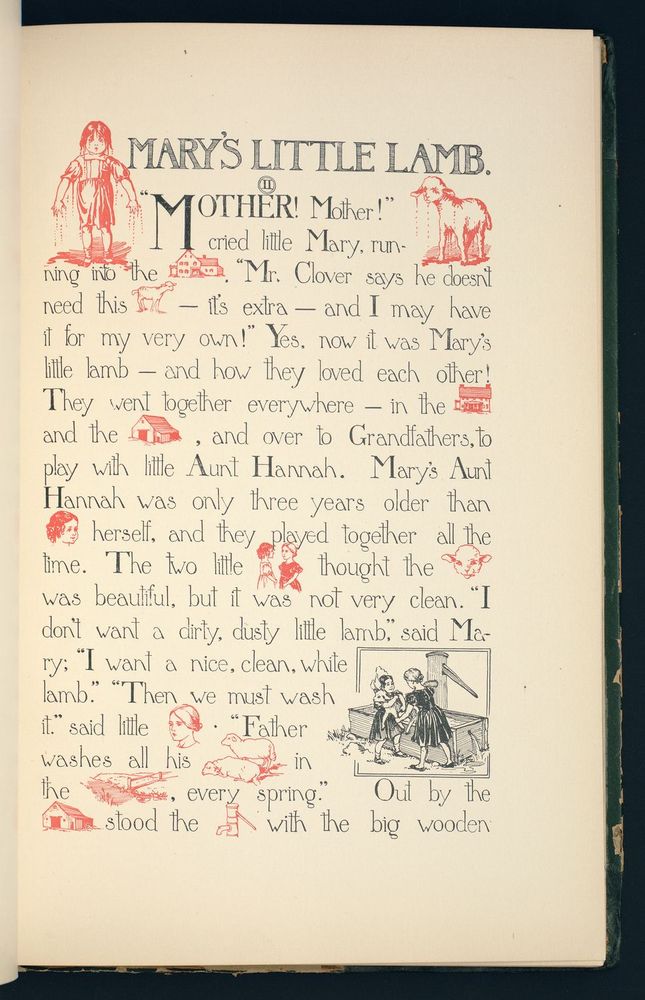 MARY'S LITTLE LAMB.
II
"MOTHER! Mother!"
cried little Mary, run-
ning into the . "Mr. Clover says he doesn't
need this — it's extra — and I may have
it for my very own!" Yes, now it was Mary's
little lamb — and how they loved each other!
They went together everywhere — in the
and the , and over to Grandfathers, to
play with little Aunt Hannah. Mary's Aunt
Hannah was only three years older than
herself, and they played together all the
time. The two little thought the
was beautiful, but it was not very clean. "I
don't want a dirty, dusty little lamb," said Ma-
ry; "I want a nice, clean, white
lamb." "Then we must wash
it." said little . "Father
washes all his in
the , every spring." Out by the
stood the with the big wooden